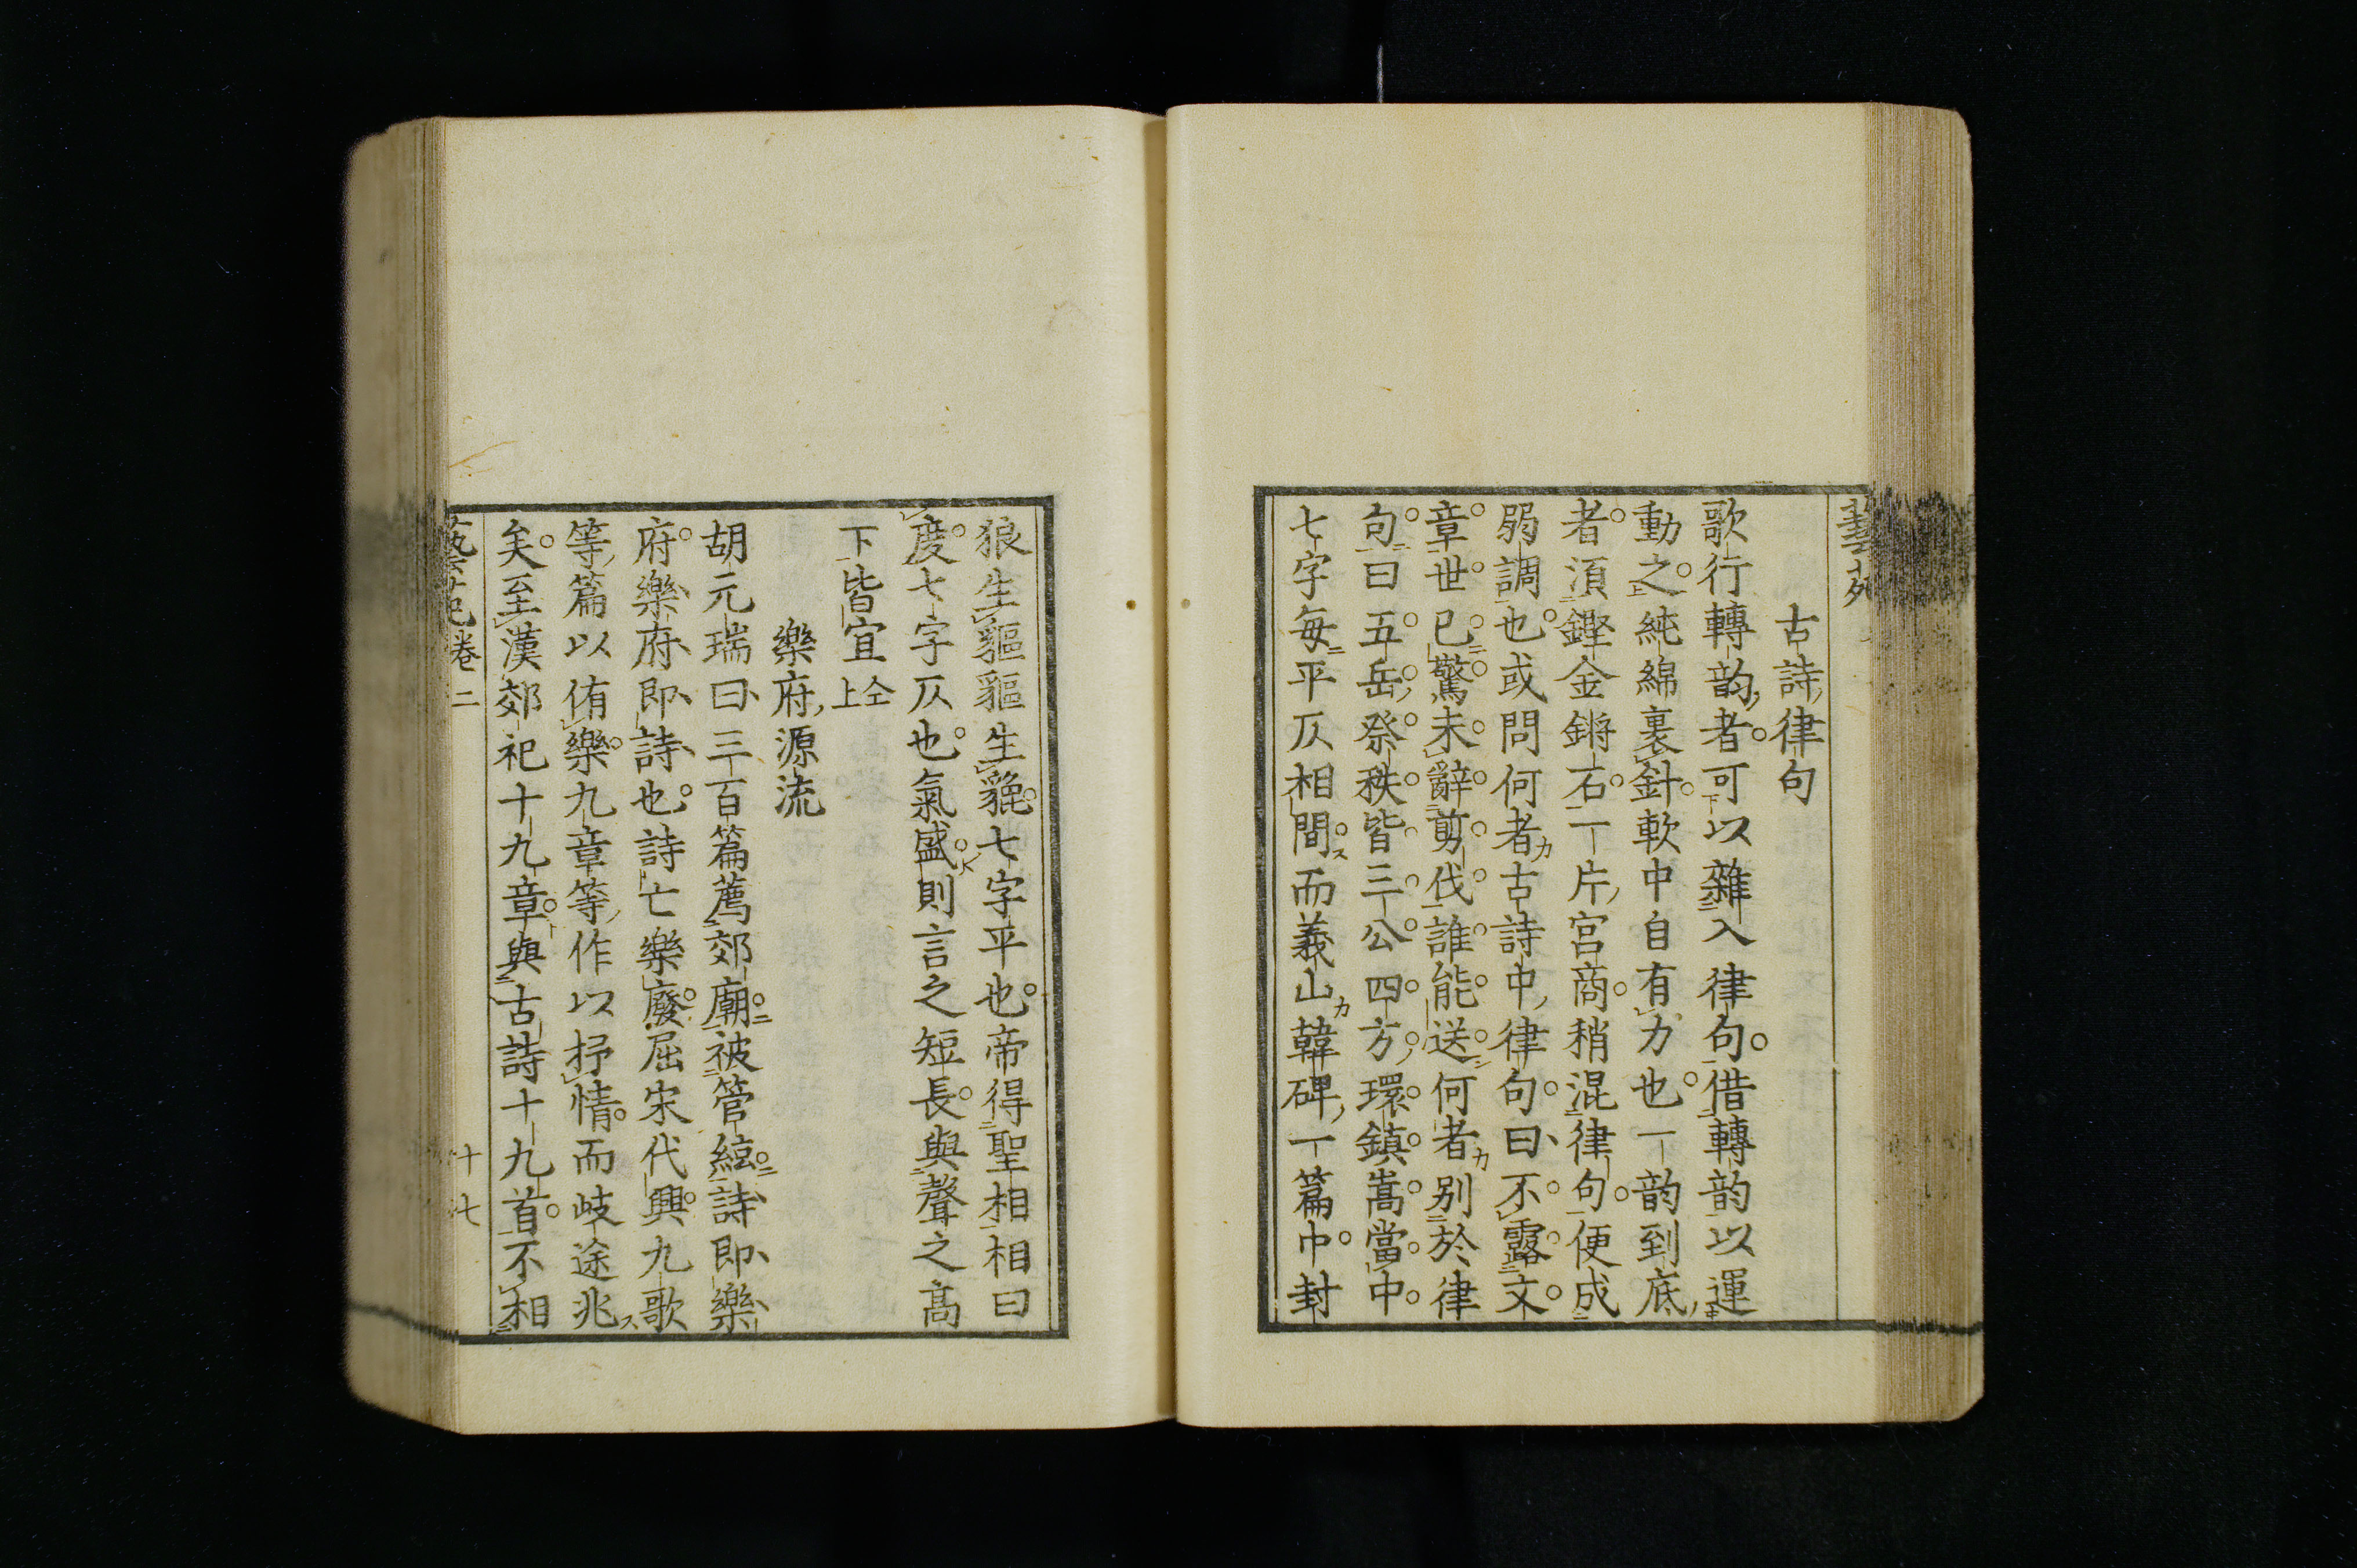 古詩律句
歌行轉韵者可以雜入律句借轉韵以運
動之純綿裹針軟中自有力也一韵到底
者湏鏗金鏘石一片宮商稍混律句便成
弱調也或問何者古詩中律句曰不露文
章世已驚未辭剪伐誰能送何者別於律
句曰五岳祭秩皆三公四方環鎮嵩當中
七字每平仄相間而義山韓碑一篇中封
狼生貙貙生貔七字平也帝得聖相相曰
度七字仄也氣盛則言之短長與聲之高
下皆宜仝上
樂府源流
胡元瑞曰三百篇薦郊廟被管絃詩即樂
府樂府即詩也詩亡樂廢屈宋代興九歌
等篇以侑樂九章等作以抒情而岐途兆
矣至漢郊祀十九章與古詩十九首不相
藝苑卷二 十七